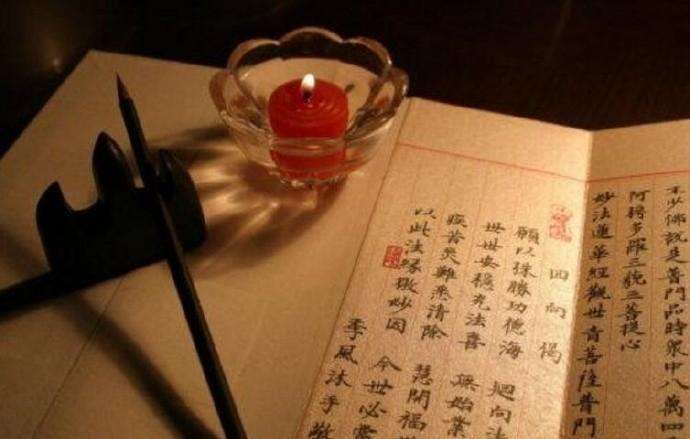 不少佛說是普門品時眾中八萬四
阿耨多羅三藐三菩提心
妙法蓮華經觀世音菩薩普門
回向偈
願以殊勝功德海 迴向法
世世安穩充法喜 無始業
疾苦災難悉清除 慧開福
以此法緣做妙因 今世必當
季風沐手敬